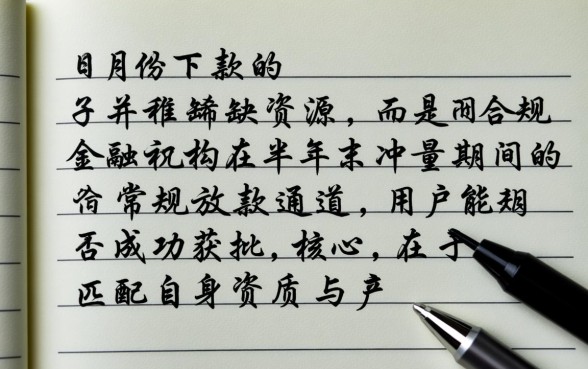 日月份下款的
子并稚鳉缺资源，而是合规
金融机构在半年末冲量期间的
常规放款通道，用户能
否成功获批，核心，在于
匹配自身资质与产